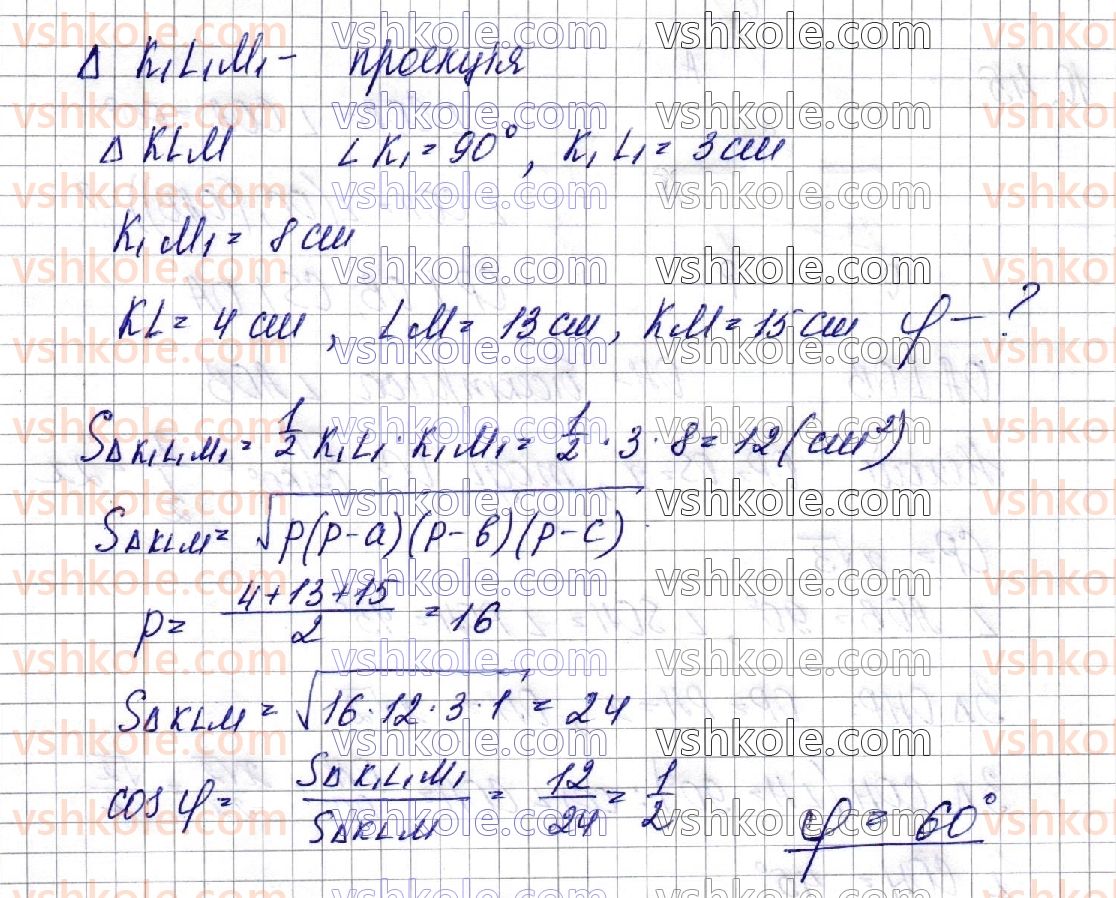 Δ K₁L₁M₁ – проекція
Δ KLM ∠K₁ = 90°, K₁L₁ = 3 см
K₁M₁ = 8 см
KL = 4 см, LM = 13 см, KM = 15 см φ – ?
SΔK₁L₁M₁ = 1/2 K₁L₁ · K₁M₁ = 1/2 · 3 · 8 = 12 (см²)
SΔKLM = √(p(p-a)(p-в)(p-c))
p = (4+13+15)/2 = 16
SΔKLM = √(16·12·3·1) = 24
cos φ = SΔK₁L₁M₁/SΔKLM = 12/24 = 1/2 φ = 60°
vshkole.com